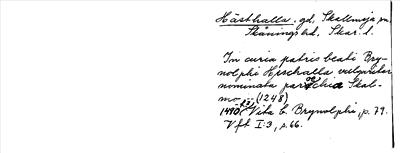 Hästhalla, gd, Skallmeja sn,
Skånings hd, Skar. l.
In curia patris beati Bry-
nolphi Hæschalla vulgariter
nominata parochia Skal-
mo... (1248)
1490 Vita b. Brynolphi, p. 79.
Vft I:3, s. 66.